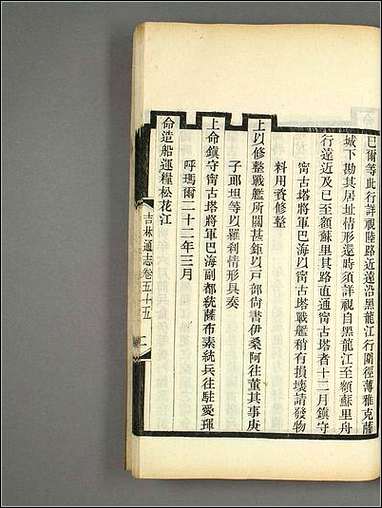 已爾等此行詳視陸路近遠沿黑龍江行圍徑薄雅克薩
城下勘其居址情形還時須詳視自黑龍江至額蘇里舟
行遠近及已至額蘇里其路直通甯古塔者十二月鎮守
甯古塔將軍巴海以甯古塔戰艦稍有損壞請發物
料用資修整
上以修整戰艦所關甚鉅以戶部尚書伊桑阿往董其事庚
子郎坦等以羅刹情形具奏
上命鎮守甯古塔將軍巴海副都統薩布素統兵往駐愛琿
呼瑪爾二十二年三月
命造船運糧松花江
吉林通志卷五十五